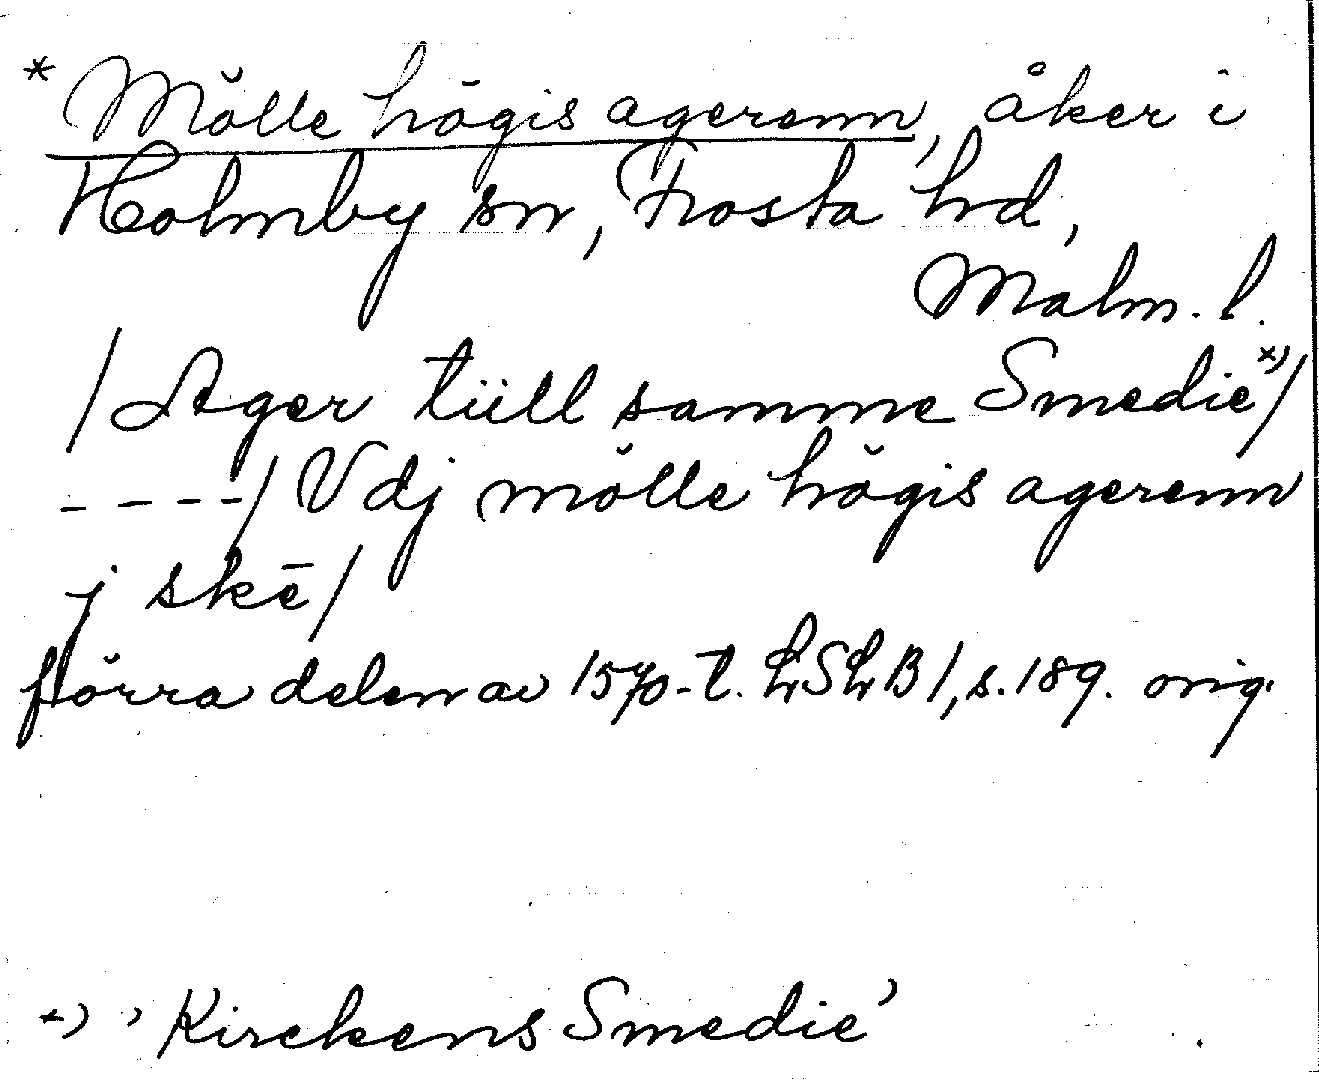 * Mŏlle hŏgis agerenn, åker i
Holmby sn, Frosta hd,
Malm. l.
/Ager tüll samme Smedie *)/
- - - -/ Vdj mŏlle hŏgis agerenn
j skē/
förra delen av 1570-t. LSLB 1, s. 189. orig.
*) 'Kirckens Smedie'